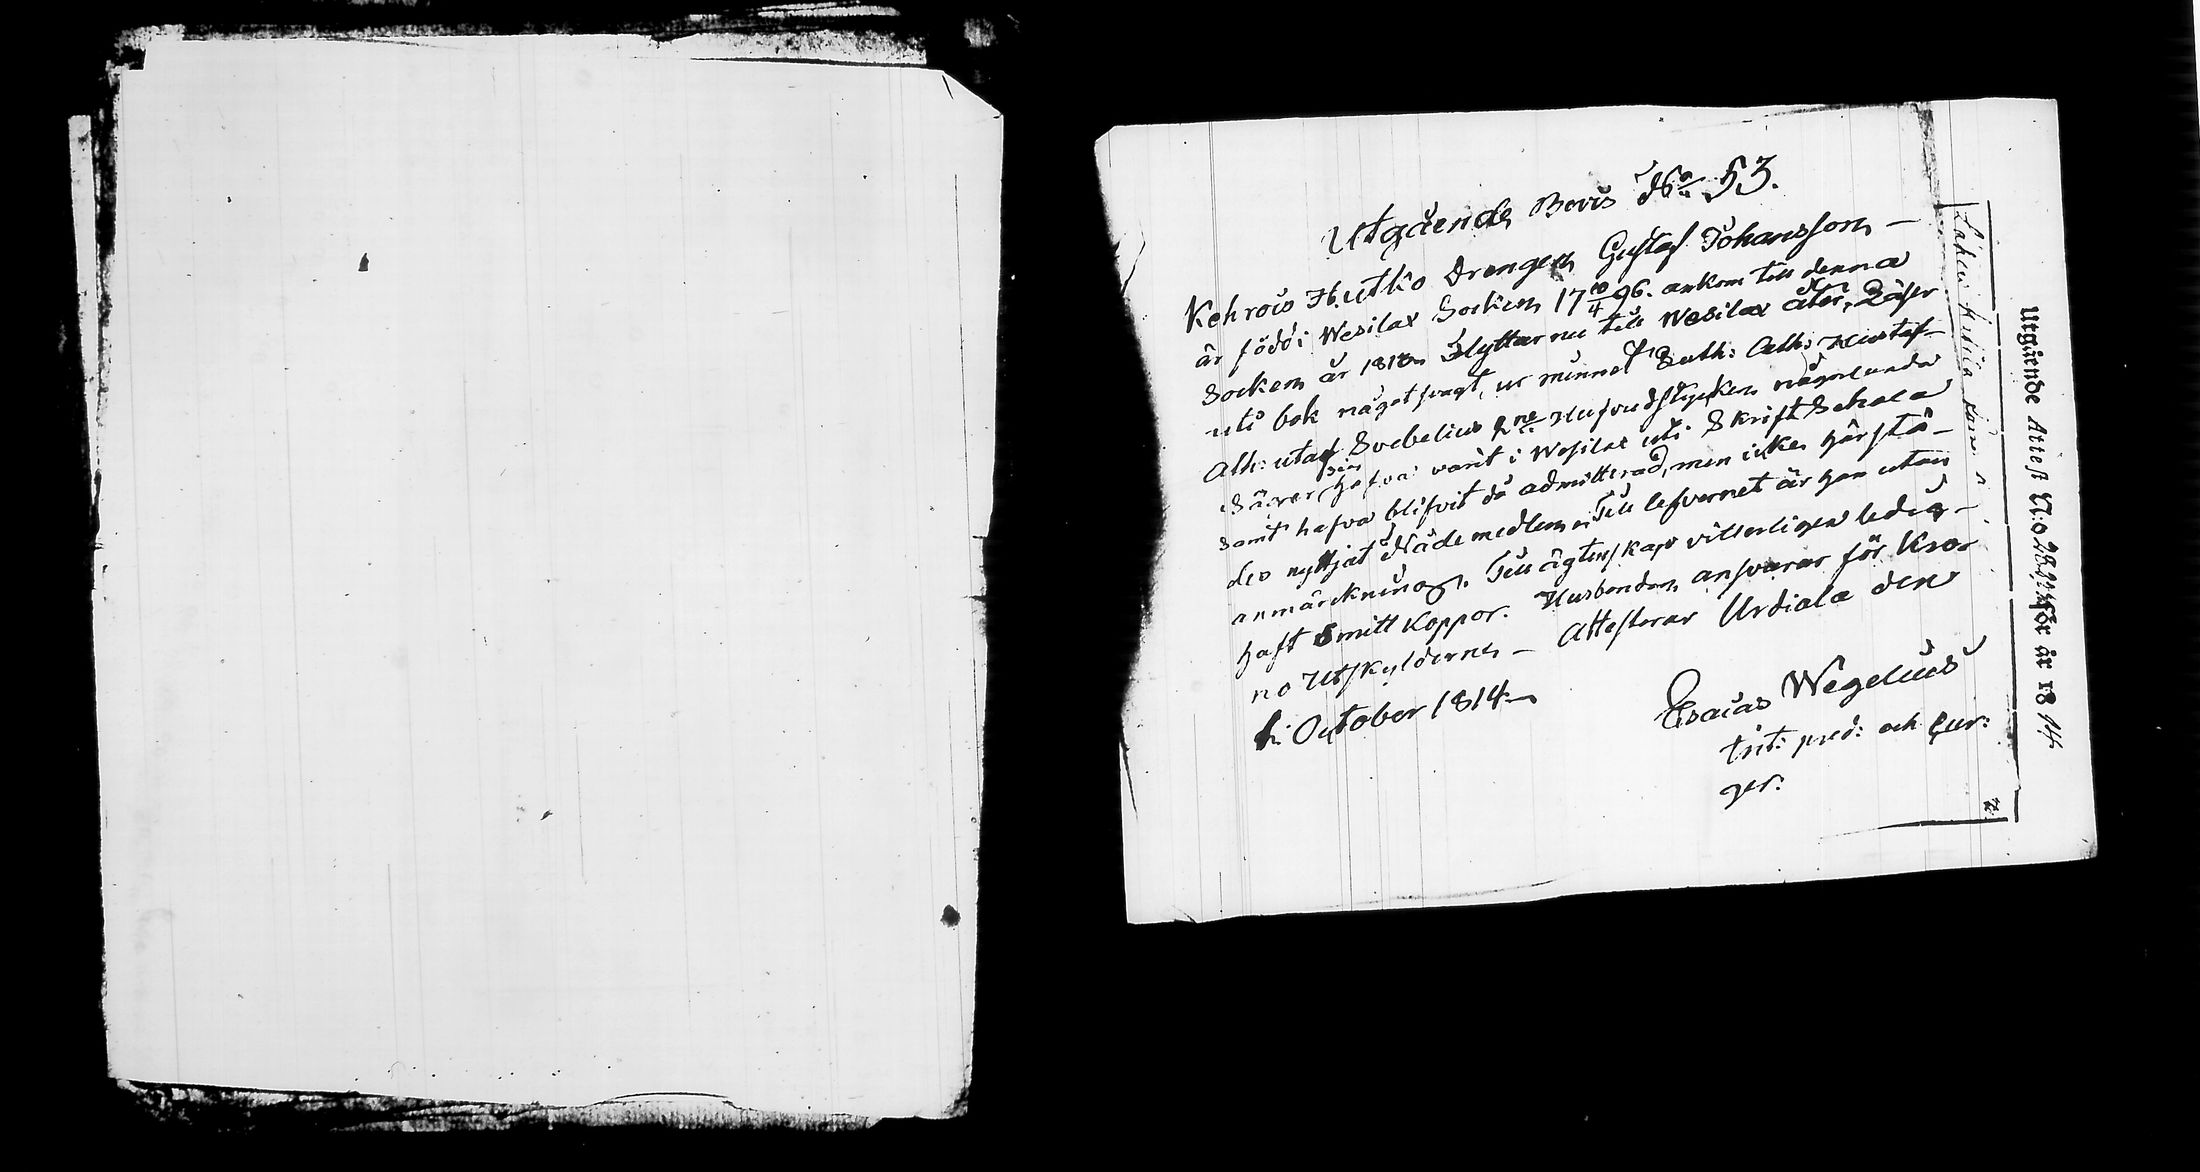 Utgående Bevis No 53.
Kehrois Hutko Drengen Gustaf Johansson —
är född i Wesilax Socken 17 10/4 96. ankom till denna
Socken år 1813. Flyttar nu till Wesilax åter, Läser
uti bok något svagt, ur minnet Luth: Cath: Kustaf-
Ath: utaf Svebelius 2ne Hufvudstycken någorlunda
Säger sig hafva varit i Wesilax uti Skrift Schola
samt hafva blifvit då admitterad, men icke härstä-
des nyttjat Nådemedlen. Till lefvernet är han utan
anmärckning. Till ägtenskap vitterligen ledig —
haft Smittkoppor. Husbonden ansvarar för Kro-
no Utskylderne — Attesterar Urdiala den
October 1814.
Esaias Wegelius
tjit: pred: och Cur:
ger.
Utgående Attest N:o för år 1814